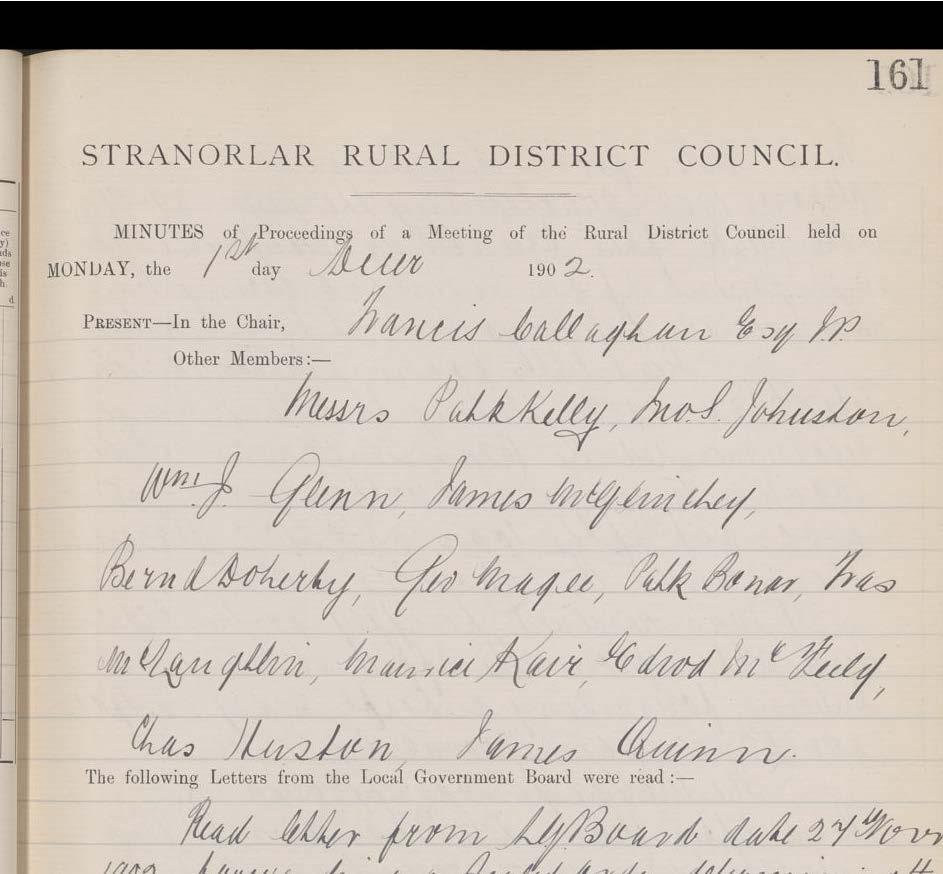 161
STRANORLAR RURAL DISTRICT COUNCIL.
MINUTES of Proceedings of a Meeting of the Rural District Council held on
MONDAY, the 1st day Decr 1902.
PRESENT—In the Chair, Francis Callaghan Esq J.P.
Other Members:—
Messrs Patk Kelly, Jno. S. Johnston,
Wm. J. Glenn, James McGlinchey,
Bernd Doherty, Geo Magee, Patk Bonar, Fras
McLaughlin, Maurice Kair, Edwd McFeely,
Chas Huston, James Quinn.
The following Letters from the Local Government Board were read:—
Read letter from LGBoard date 27 Novr
1902